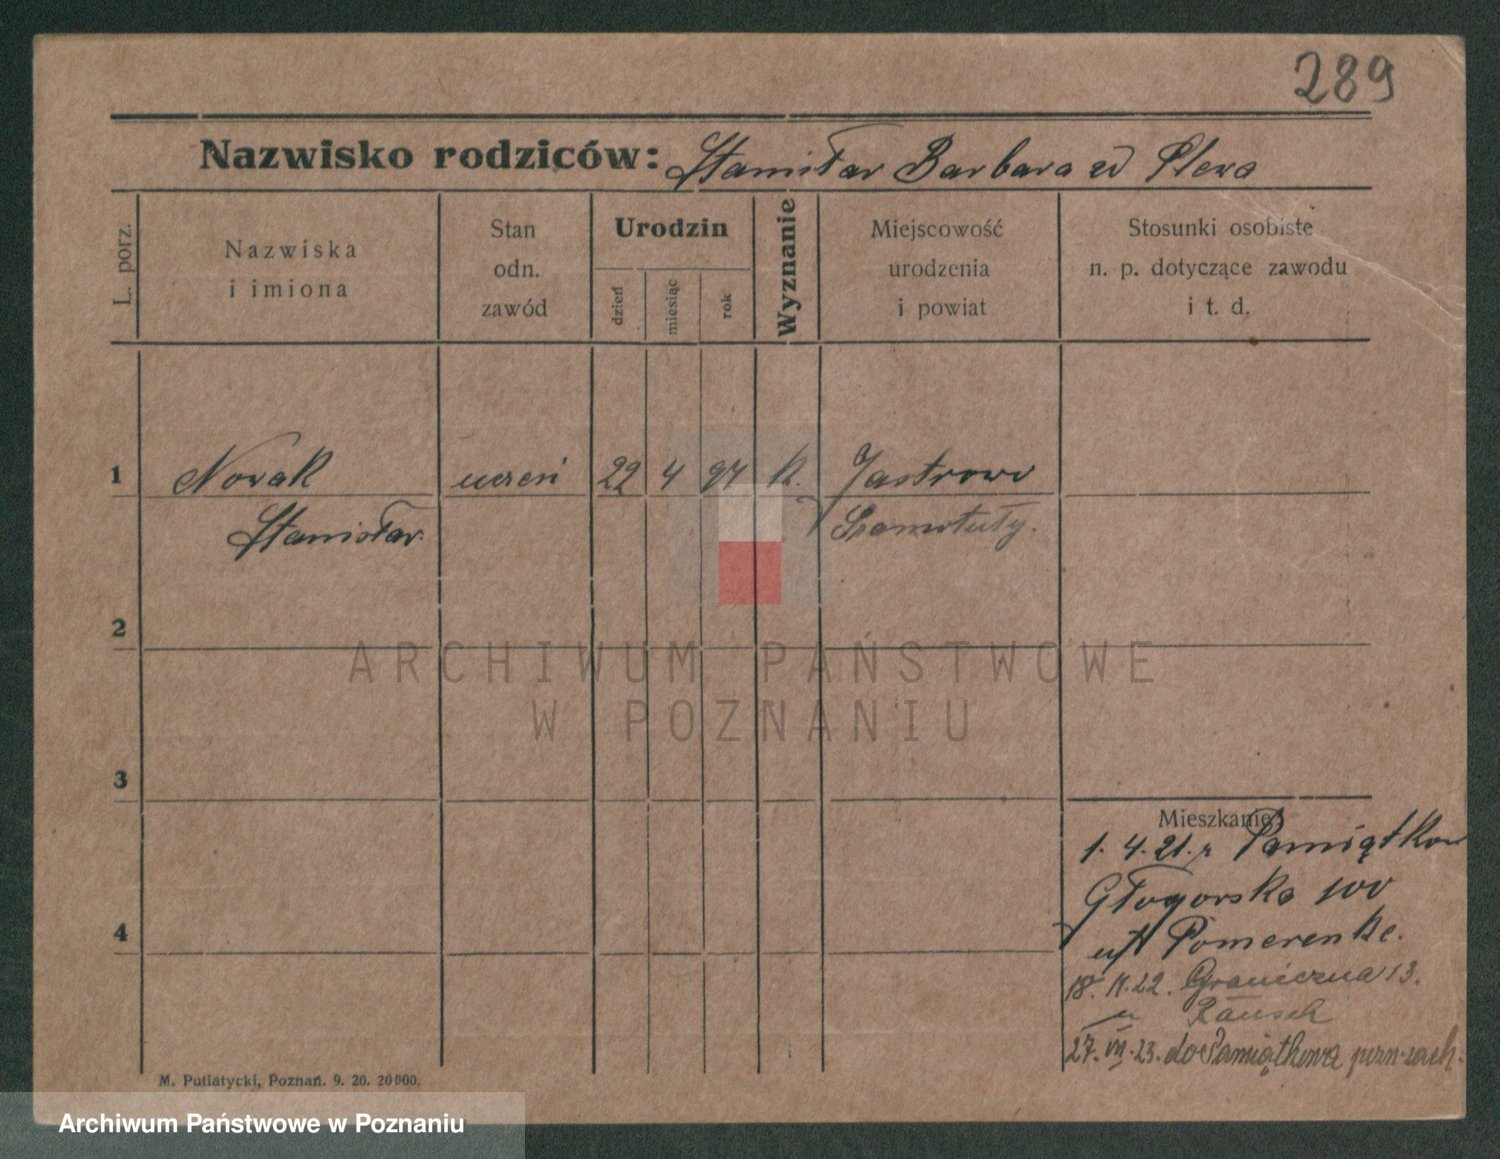 289
Nazwisko rodziców: Stanisław Barbara zd Plewa
L. porz.
Nazwiska
i imiona
Stan
odn.
zawód
Urodzin
dzień
miesiąc
rok
Wyznanie
Miejscowość
urodzenia
i powiat
Stosunki osobiste
n. p. dotyczące zawodu
i t. d.
1
Nowak uczeń 22 4 04 k. Jastrowo
Stanisław Szamotuły.
2
ARCHIWUM PAŃSTWOWE
W POZNANIU
3
Mieszkanie:
1.4.21.r Pamiątkow
Głogowska 100
u/H Pomerenke.
18. 22. Graniczna 13.
u Rausch
27. VII. 23. do Pamiątkowa pozn-zach.
4
M. Putiatycki, Poznań. 9. 20. 20000.
Archiwum Państwowe w Poznaniu